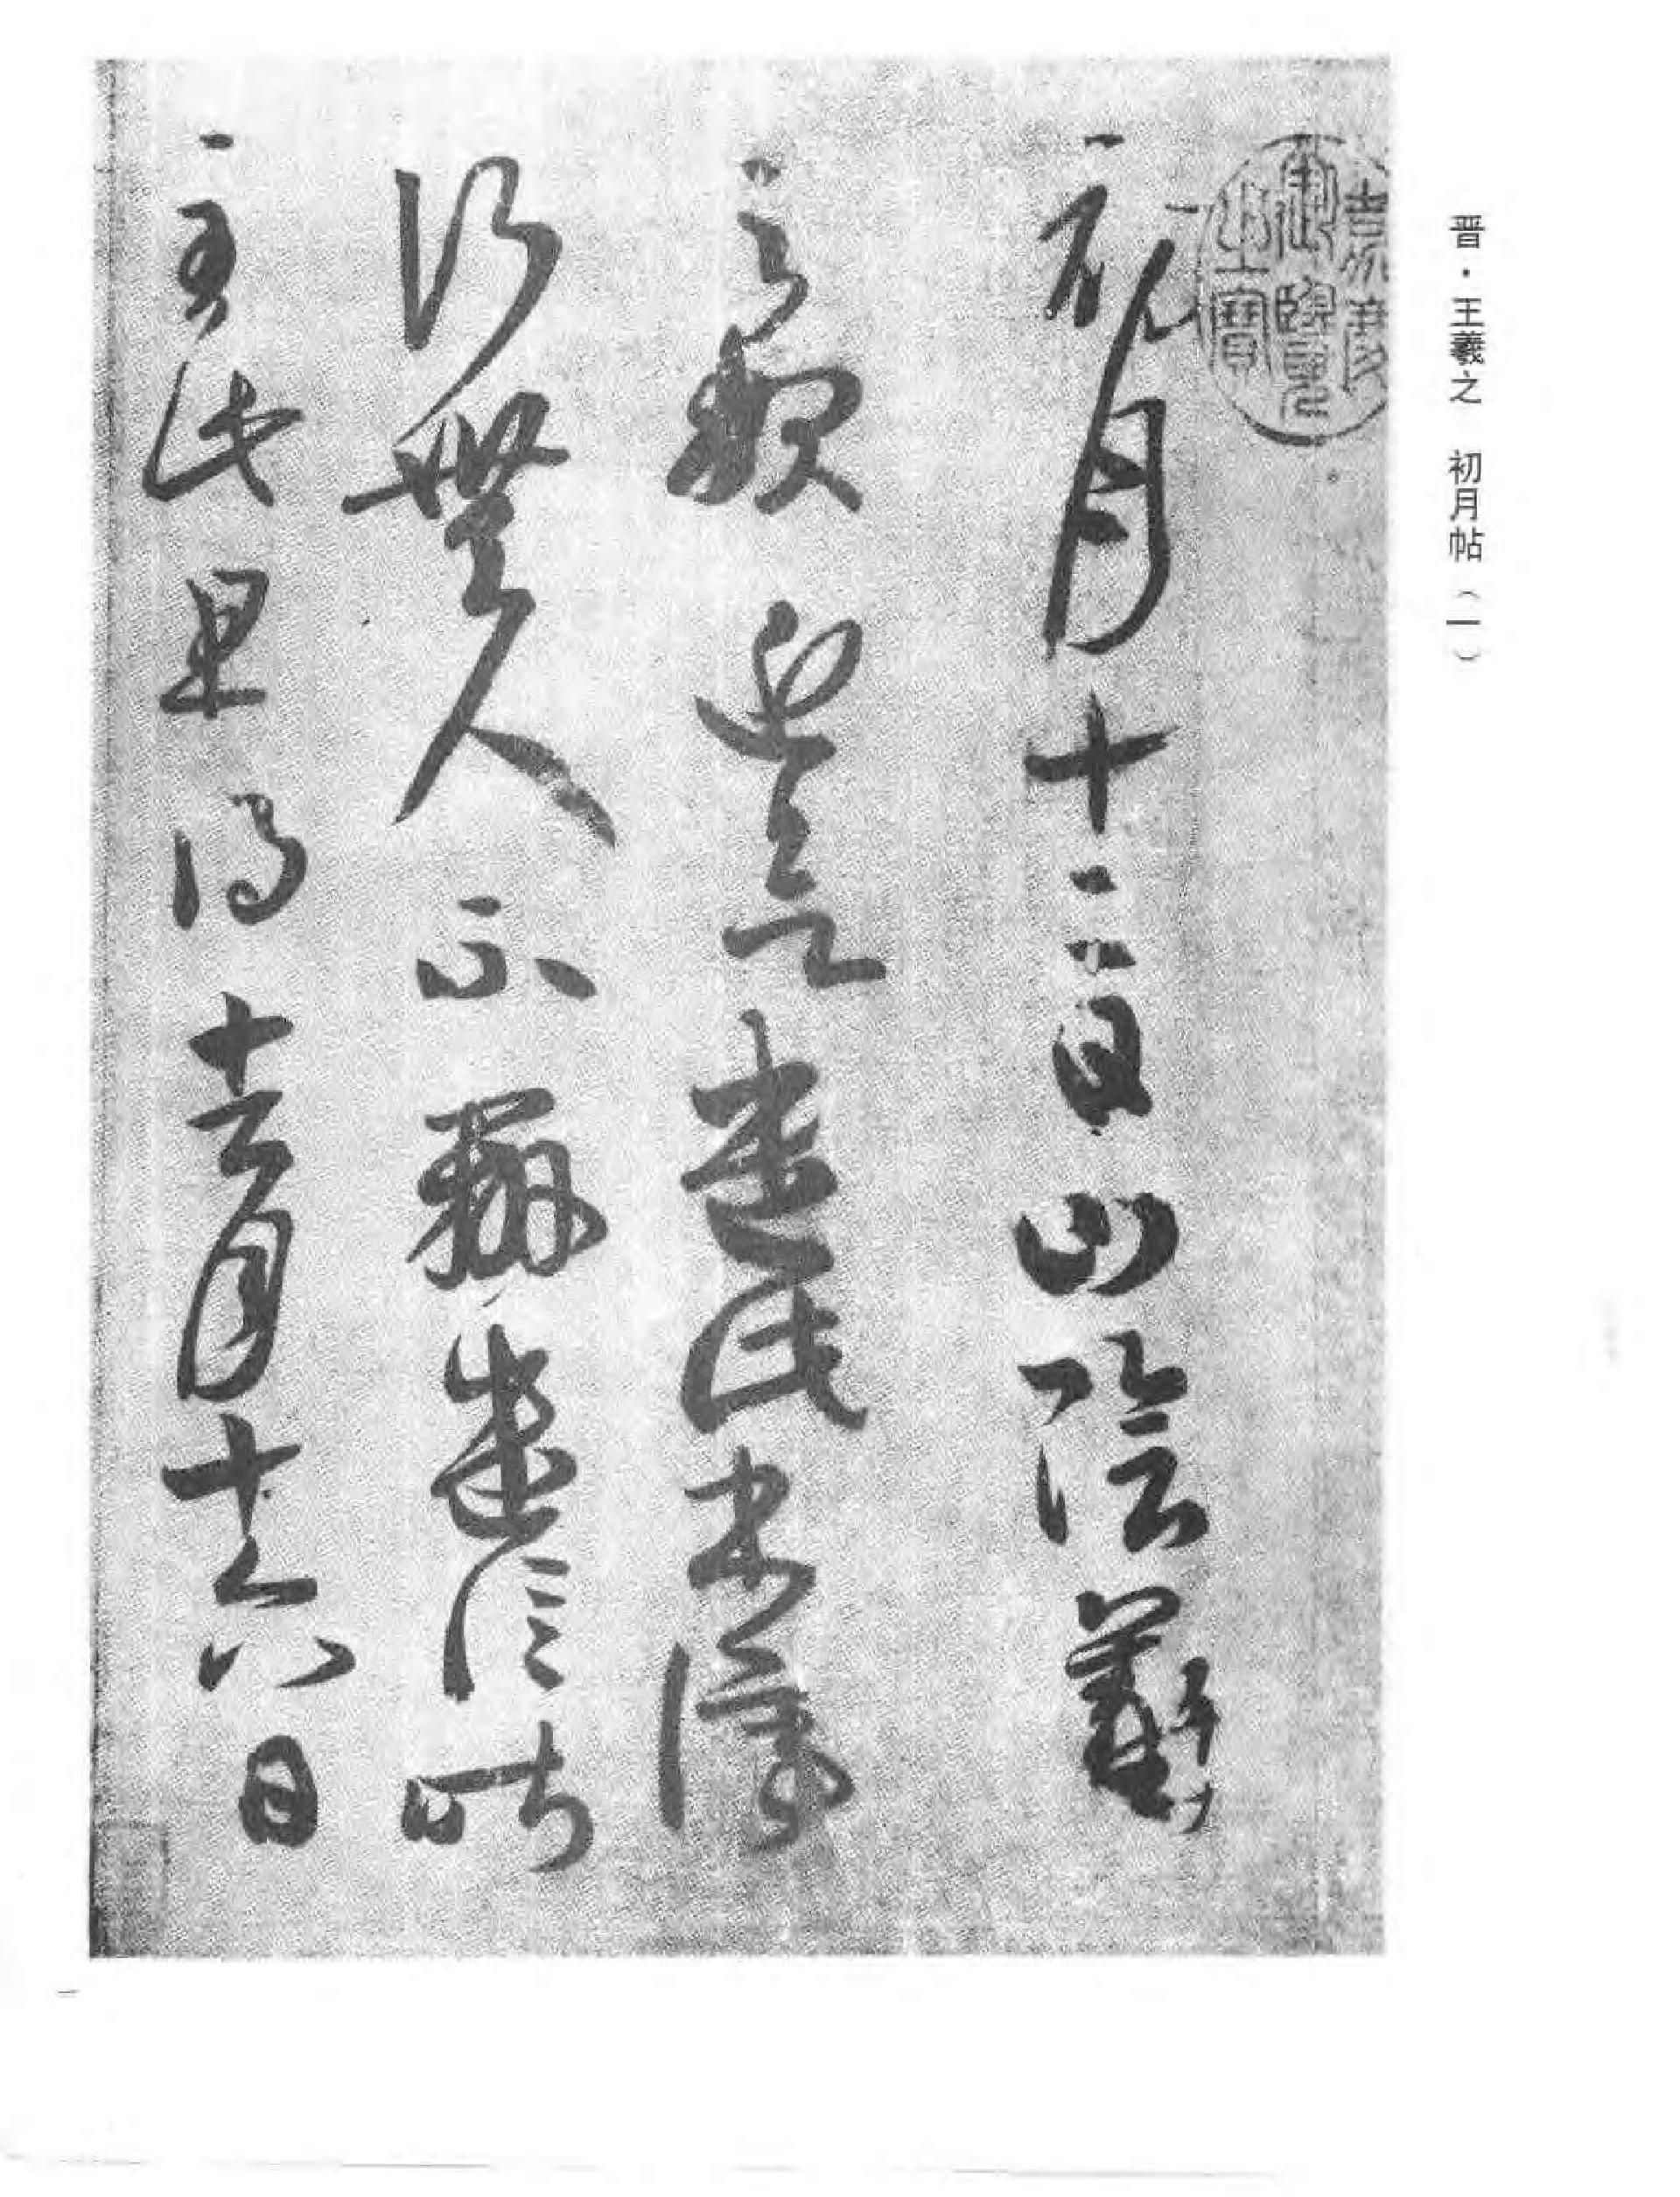 晋·王羲之 初月帖（一）
嘉慶
御覽
之寶
初月十二日山陰羲
之報近欲遣此書停
行無人不辦遣信昨
至此且得去月十六日
一